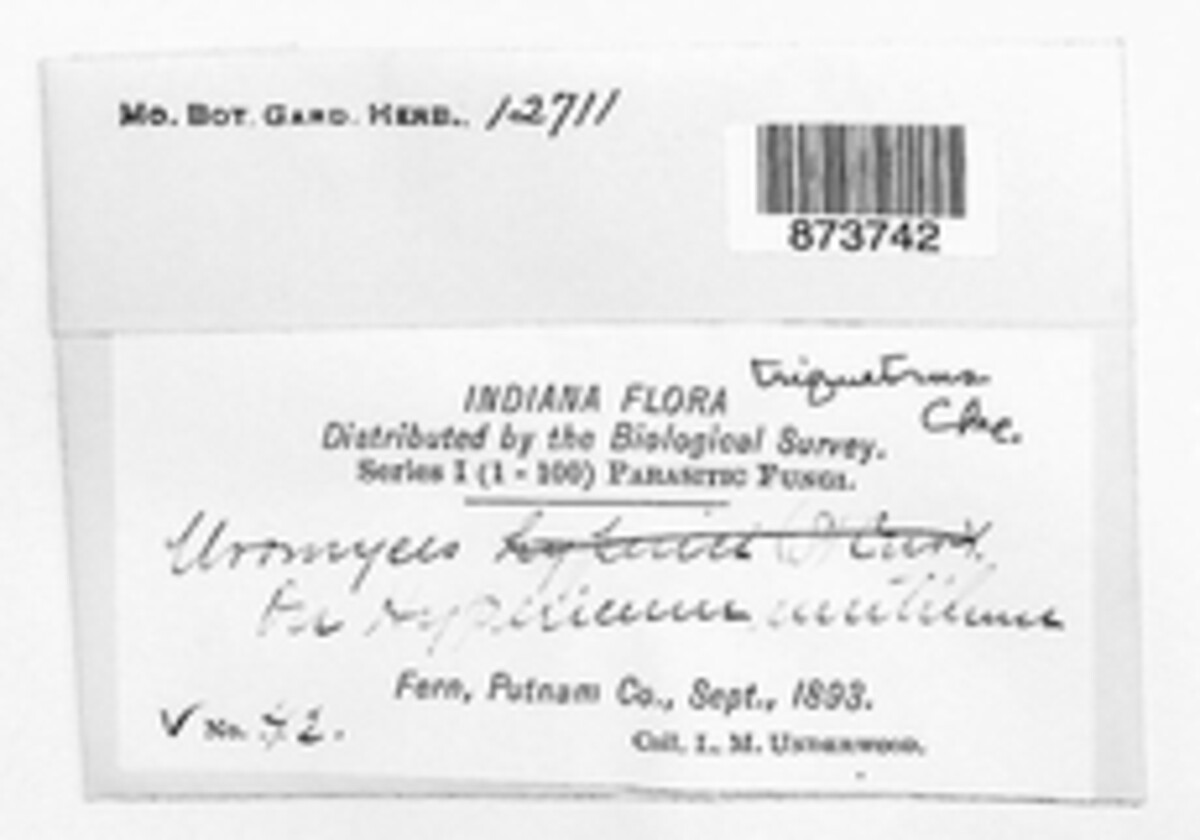 Mo. Bot. Gard. Herb. 12711
873742
triquetrus
Cke.
INDIANA FLORA
Distributed by the Biological Survey.
Series I (1 - 100) Parasitic Fungi.
Uromyces
On Hypericum mutilum
Fern, Putnam Co., Sept., 1893.
No. 42.
Coll. L. M. Underwood.